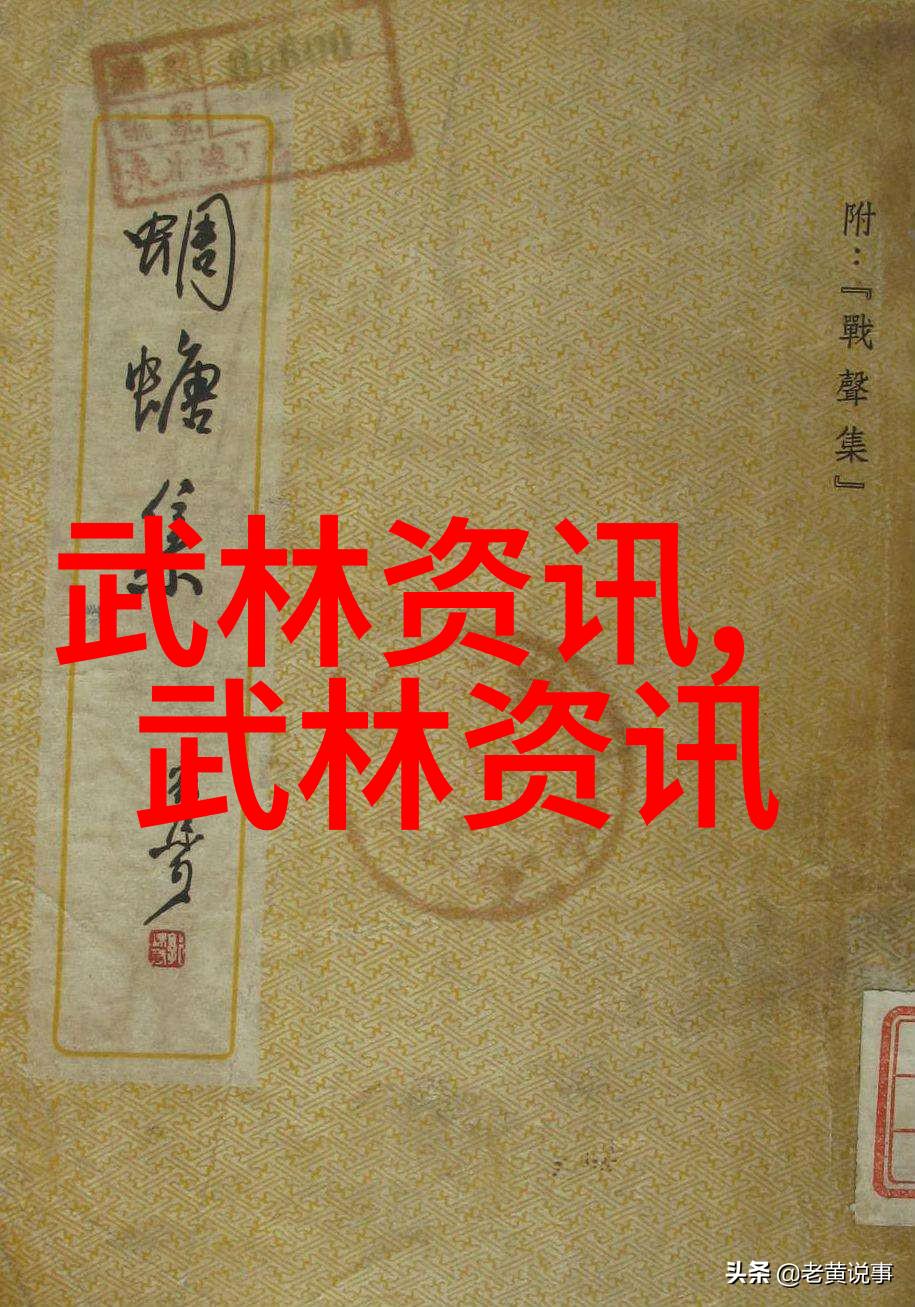 附：『戰聲集』
蜩螗集
武林资讯,
武林资讯
头条 @老黄说事